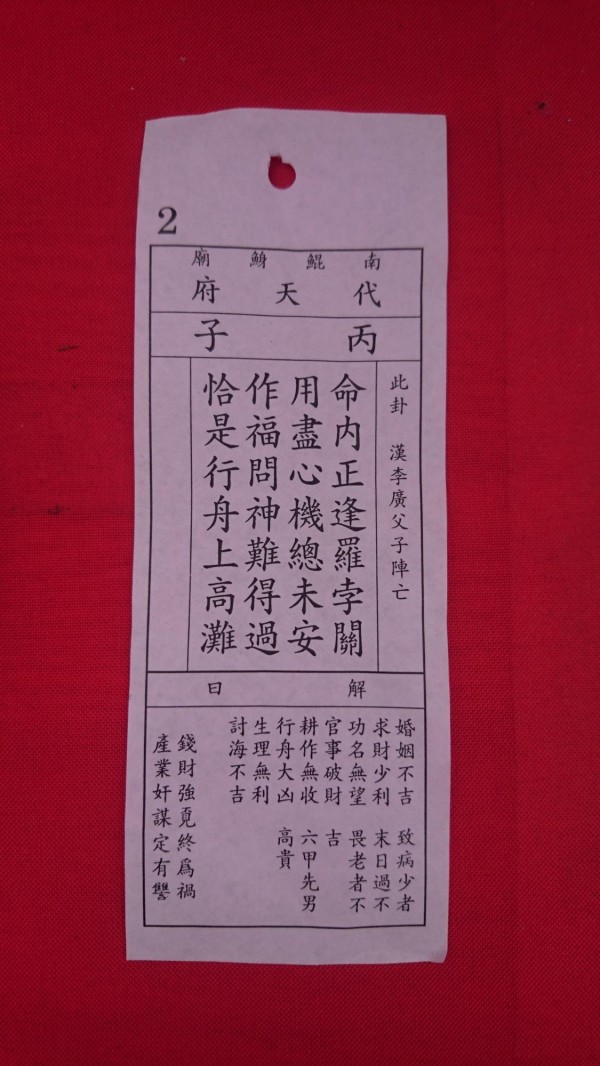 2
南鯤鯓廟
代天府
丙子
此卦 漢李廣父子陣亡
命內正逢羅孛關
用盡心機總未安
作福問神難得過
恰是行舟上高灘
解曰
婚姻不吉 致病少者
求財少利 末日過不
功名無望 畏老者不
官事破財 吉
耕作無收 六甲先男
行舟大凶 高貴
生理無利
討海不吉
錢財強覔終為禍
產業奸謀定有讐